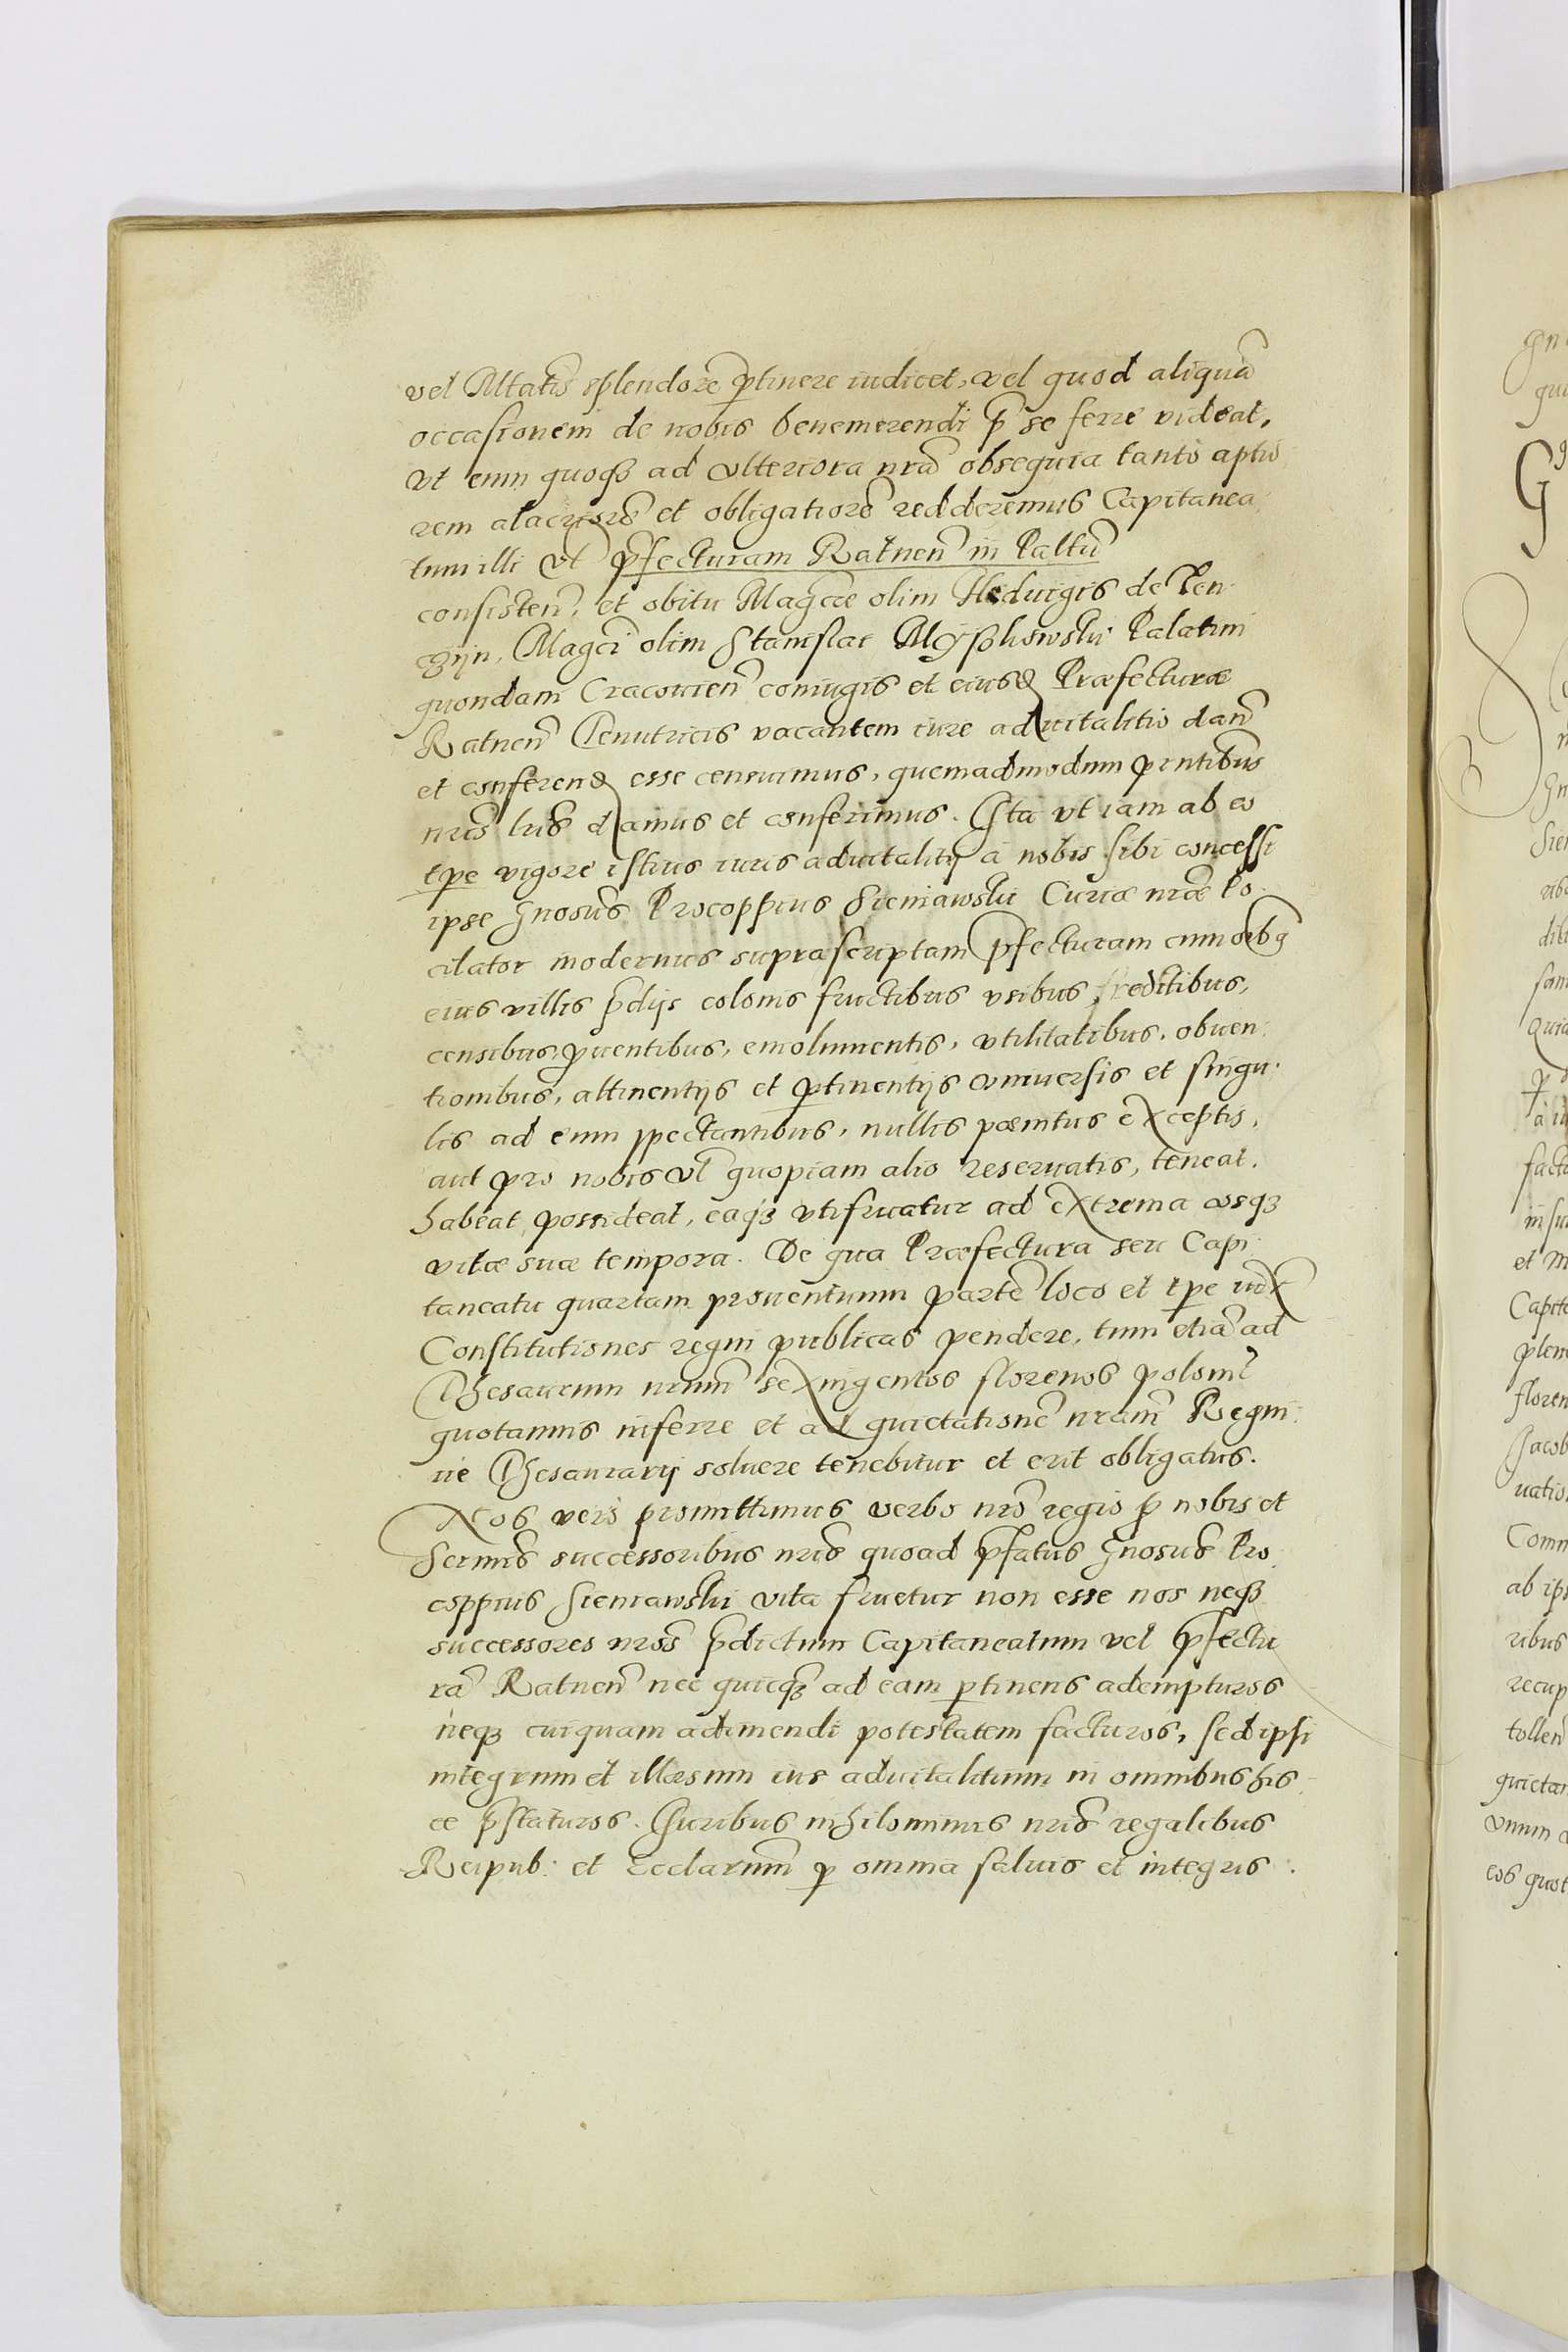 vel Mtatis splendorē ꝑtinere iudicet, vel quod aliquā
occasionem de nobis benemerendi p̄ se ferre videat,
Vt eum quoqȝ ad vlteriora nrā obsequia tanto aptio
rem alacriorē et obligatiorē redderemus Capitanea
tum illi vl p̄fecturam Ratnen̄ in Paltū
consisten̄, et obitu Magcae olim Heduigis de Ten
czijn, Magci olim Stanislai Myschowski Palatini
quondam Cracouien̄ coniugis et eiusd Præfecturæ
Ratnen̄ Tenutricis vacantem iure aduitalitio dan̄
et conferend esse censuimus, quemadmodum pn̄tibus
nris lris damus et conferimus. Ita vt iam ab eo
tpe vigore istius iuris aduitalitij à nobis sibi concessi
ipse Gnosus Procoppius Sieniawski Curiæ nræ Po
cilator modernus supræscriptam p̄fecturam cum oībꝯ
eius villis p̄dijs colonis fructibus vsibus, reditibus,
censibus, ꝓuentibus, emolumentis, vtilitatibus, obuen
tionibus, attinentijs et ꝑtinentijs vniuersis et singu
lis ad eum spectantibus, nullis pænitus exceptis,
aut pro nobis vl quopiam alio reseruatis, teneat.
habeat, possideat, eaqȝ vtifruatur ad extrema vsqȝ
vitæ suæ tempora. De qua Præfectura seu Capi
taneatu quartam prouentuum partē loco et tpe iux
Constitutiones regni publicas pendere, tum etiā ad
Thesaurum nrum sexingentos florenos poloni
quotannis inferre et ad quietationē nram Regni
ue Thesaurarij soluere tenebitur et erit obligatus.
Nos vero promittimus verbo nro regio ꝓ nobis et
Sermis successoribus nris quoad p̄fatus Gnosus Pro
coppius Sieniawski vita fruetur non esse nos neqȝ
successores nros p̄dictum Capitaneatum vel p̄fectu
rā Ratnen̄ nec quicqȝ ad eam ꝑtinens adempturos
neqȝ cuiquam adimendi potestatem facturos, sed ipsi
integrum et illæsum ius aduitalitium in omnibus his
ce p̄staturos. Iuribus nihilominus nris regalibus
Reipub: et Ecclarum ꝑ omnia saluis et integris.